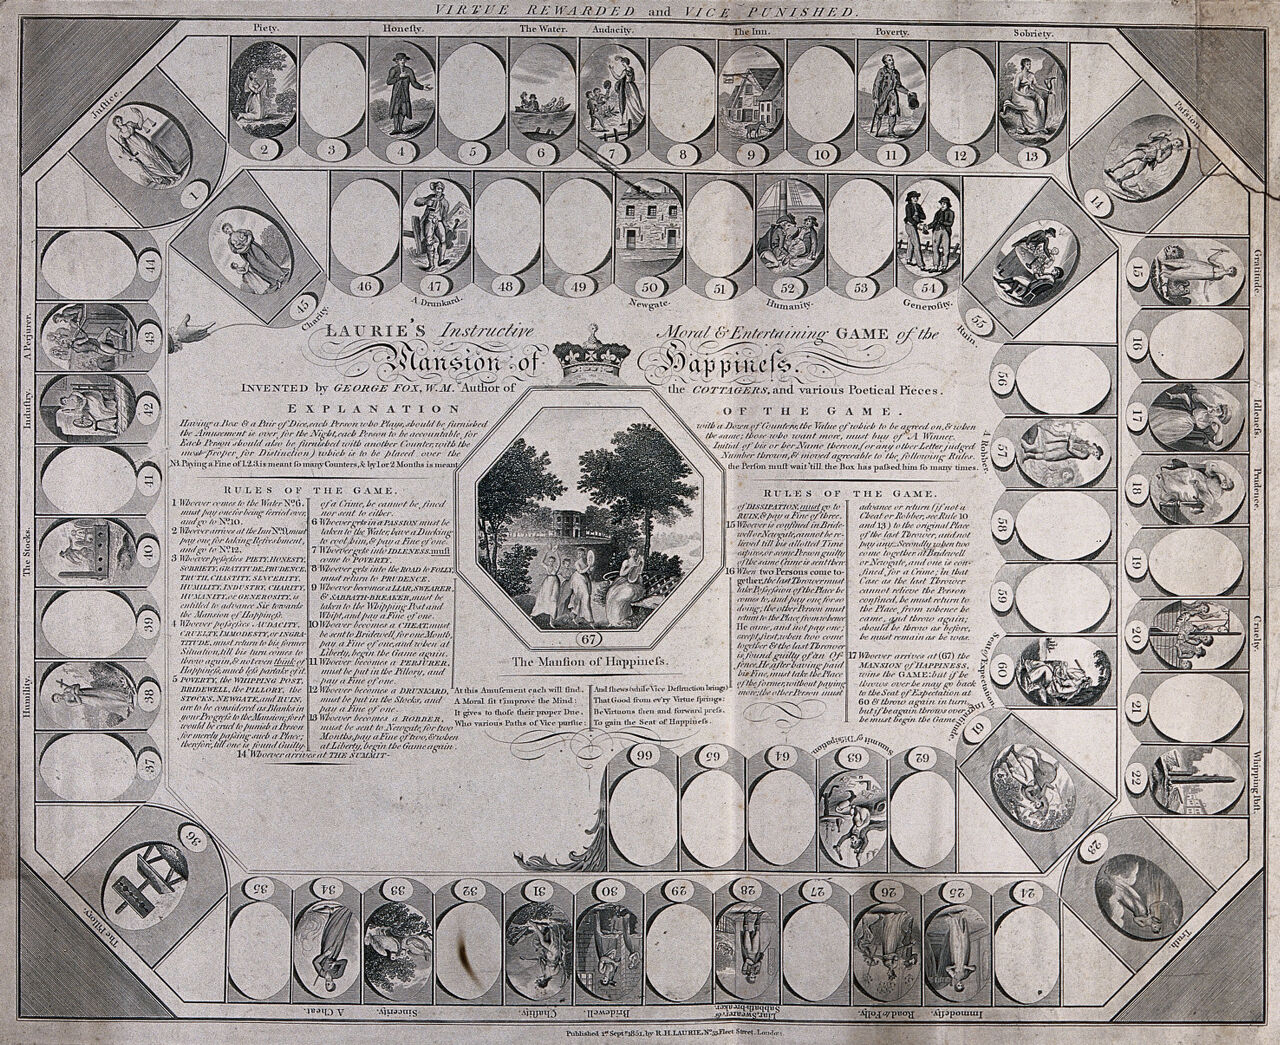 VIRTUE REWARDED and VICE PUNISHED.
Piety. Honesty. The Water. Audacity. The Inn. Poverty. Sobriety.
Justice.
1
2 3 4 5 6 7 8 9 10 11 12 13
Passion.
14
Gratitude.
15
16
Idleness.
17
Prudence.
18
19
Cruelty.
20
21
Whipping Post.
22
23
Truth.
24
25
Immodesty.
26
Road to Folly.
27
28
Liar, Swearer & Sabbath-breaker.
29
30
Bridewell.
31
Chastity.
32
33
Sincerity.
34
A Cheat.
35
36
The Pillory.
37
38
Humility.
39
40
The Stocks.
41
42
Industry.
43
A Perjurer.
44
45
Charity.
46 47 48 49 50 51 52 53 54
A Drunkard. Newgate. Humanity. Generosity.
55
Ruin.
56
57
A Robber.
58
59
60
Seat of Expectation.
61
Ingratitude.
62
63
Summit of Dissipation.
64
65
66
LAURIE'S Instructive Moral & Entertaining GAME of the
Mansion of Happiness.
INVENTED by GEORGE FOX, W.M. Author of the COTTAGERS, and various Poetical Pieces.
EXPLANATION OF THE GAME.
Having a Box & a Pair of Dice, each Person who Plays, should be furnished with a Dozen of Counters, the Value of which to be agreed on, & when
the Amusement is over for the Night, each Person to be accountable for the same; those who want more, must buy of A Winner.
Each Person should also be furnished with another Counter, with the Initial of his or her Name thereon, (or any other Letter judged
most proper for Distinction) which is to be placed over the Number thrown, & moved agreeable to the following Rules.
NB. Paying a Fine of 1.2.3. is meant so many Counters, & by 1 or 2 Months is meant the Person must wait 'till the Box has passed him so many times.
RULES OF THE GAME.
1 Whoever comes to the Water No. 6.
must pay one for being ferried over,
and go to No. 10.
2 Whoever arrives at the Inn No. 9, must
pay one for taking Refreshment,
and go to No. 12.
3 Whoever possesses PIETY, HONESTY,
SOBRIETY, GRATITUDE, PRUDENCE,
TRUTH, CHASTITY, SINCERITY,
HUMILITY, INDUSTRY, CHARITY,
HUMANITY, or GENEROSITY, is
entitled to advance Six towards
the Mansion of Happiness.
4 Whoever possesses AUDACITY,
CRUELTY, IMMODESTY, or INGRA-
TITUDE, must return to his former
Situation, till his turn comes to
throw again, & not even think of
Happiness, much less partake of it.
5 POVERTY, the WHIPPING POST,
BRIDEWELL, the PILLORY, the
STOCKS, NEWGATE, and RUIN,
are to be considered as Blanks in
your Progress to the Mansion; for it
would be cruel to punish a Person
for merely passing such a Place;
therefore, till one is found Guilty
of a Crime, he cannot be fined
nor sent to either.
6 Whoever gets in a PASSION must be
taken to the Water, have a Ducking
to cool him, & pay a Fine of one.
7 Whoever gets into IDLENESS, must
come to POVERTY.
8 Whoever gets into the ROAD to FOLLY,
must return to PRUDENCE.
9 Whoever becomes a LIAR, SWEARER,
& SABBATH-BREAKER, must be
taken to the Whipping Post and
Whipt, and pay a Fine of one.
10 Whoever becomes a CHEAT, must
be sent to Bridewell for one Month,
pay a Fine of one, and when at
Liberty, begin the Game again.
11 Whoever becomes a PERJURER,
must be put in the Pillory, and
pay a Fine of one.
12 Whoever becomes a DRUNKARD,
must be put in the Stocks, and
pay a Fine of one.
13 Whoever becomes a ROBBER,
must be sent to Newgate, for two
Months, pay a Fine of two, & when
at Liberty, begin the Game again.
14 Whoever arrives at THE SUMMIT
67
The Mansion of Happiness.
At this Amusement each will find,
A Moral fit t'improve the Mind;
It gives to those their proper Due,
Who various Paths of Vice pursue;
And shews (while Vice Destruction brings)
That Good from ev'ry Virtue springs:
Be Virtuous then and forward press,
To gain the Seat of Happiness.
RULES OF THE GAME.
of DISSIPATION, must go to
RUIN, & pay a Fine of three.
15 Whoever is confined in Bride-
well or Newgate, cannot be re-
lieved till his allotted Time
expires, or some Person guilty
of the same Crime is sent there
16 When two Persons come to-
gether, the last Thrower must
take Possession of the Place he
comes to, and pay one for so
doing; the other Person must
return to the Place from whence
He came, and not pay one;
except, first, when two come
together & the last Thrower
is found guilty of an Of-
fence, He, after having paid
his Fine, must take the Place
of the former, without paying
more, the other Person must
advance or return (if not a
Cheat or Robber, see Rule 10
and 13) to the original Place
of the last Thrower, and not
pay any: Secondly, when two
come together at Bridewell
or Newgate, and one is con-
fined, for a Crime; in that
Case as the last Thrower
cannot relieve the Person
confined, he must return to
the Place, from whence he
came, and throw again;
should he throw as before,
he must remain as he was.
17 Whoever arrives at (67) the
MANSION of HAPPINESS,
wins the GAME: but if he
throws over he may go back
to the Seat of Expectation at
60 & throw again in turn,
but if he again throws over,
he must begin the Game.
Published 1st Septr. 1851, by R.H. LAURIE, No. 53, Fleet Street, London.